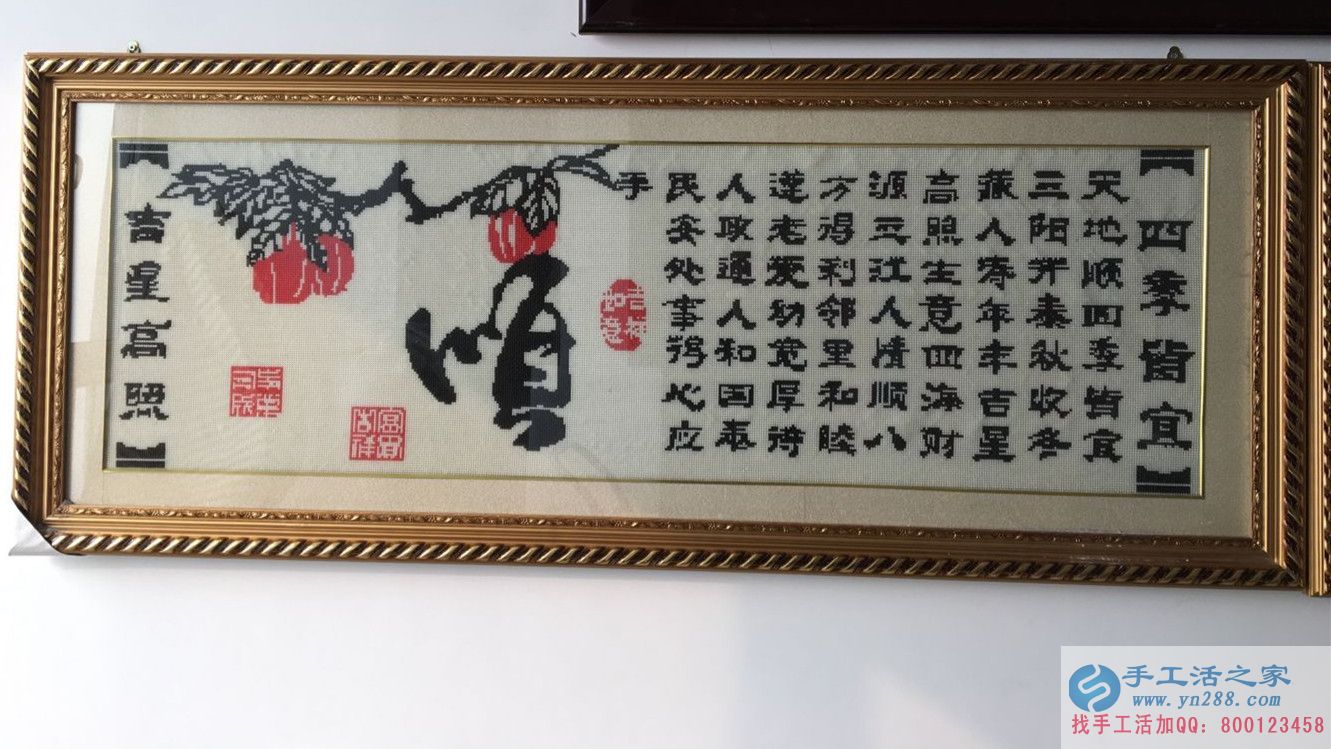 四季皆宜
天地顺四季皆宜
三阳开泰秋收冬
藏人寿年丰吉星
高照生意四海财
源三江人情顺八
方得利邻里和睦
遵老爱幼宽厚待
人政通人和国泰
民安处事得心应
手
吉祥如意
顺
富贵吉祥
吉星高照
手工活之家
www.yn288.com
找手工活加QQ：800123458